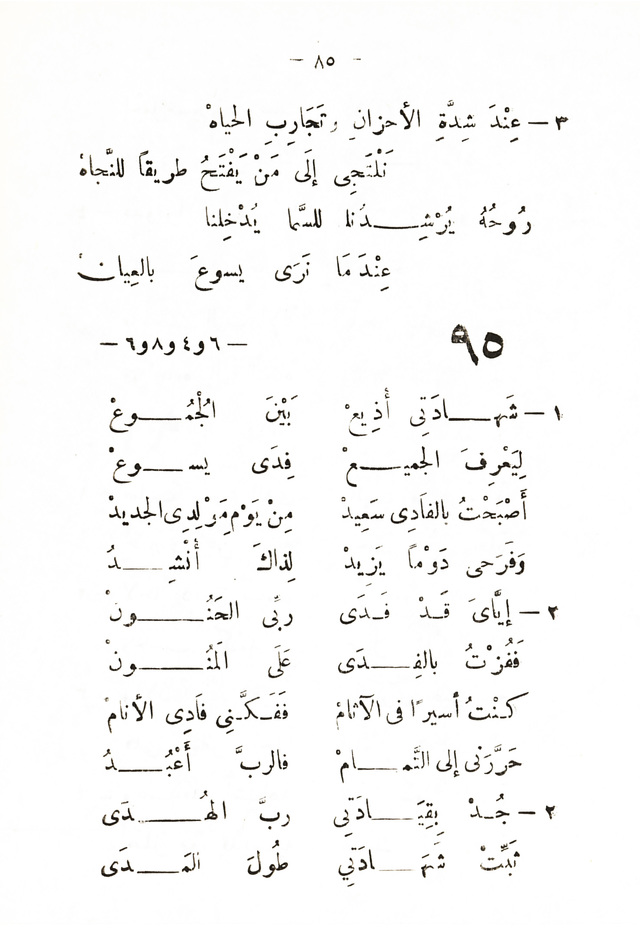 - ٨٥ -
٣ - عِنْدَ شِدَّةِ الأحزانِ وتَجَارِبِ الحياهْ
نَلْتَجِى إِلَى مَنْ يَفْتَحُ طريقاً للنَّجاهْ
رُوحُهُ يُرْشِـدُنا للسَّما يُدْخِلنا
عِنْدَ مَا نَرَى يسوعَ بالعِيان
٩٥ - ٦و٤و٨و٦ -
١ - شَهـادَتِى أُذِيعْ بَيْنَ الجُمُـوعْ
لِيَعْرِفَ الجميـعْ فِدَى يسـوعْ
أَصْبَحْتُ بالفَادِى سَعِيدْ مِنْ يَوْمِ مَوْلِدِى الجديدْ
وَفَرَحى دَوْماً يَزِيدْ لِذاكَ أُنْشِـدُ
٢ - إيَّاىَ قَـدْ فَـدَى ربِّى الحَنُـونْ
فَفُزْتُ بالفِـدَى عَلَى المَنُـونْ
كـنْتُ أسيرًا فى الآثامْ فَفَـكَّـنِى فَادِى الأنامْ
حَرَّرَنى إلى التَّمـامْ فالربَّ أَعْبُـدُ
٢ - جُـدْ بِقِيَـادَتِى ربَّ الهُـدَى
ثَبِّتْ شَهَـادَتِي طُولَ المَـدَى